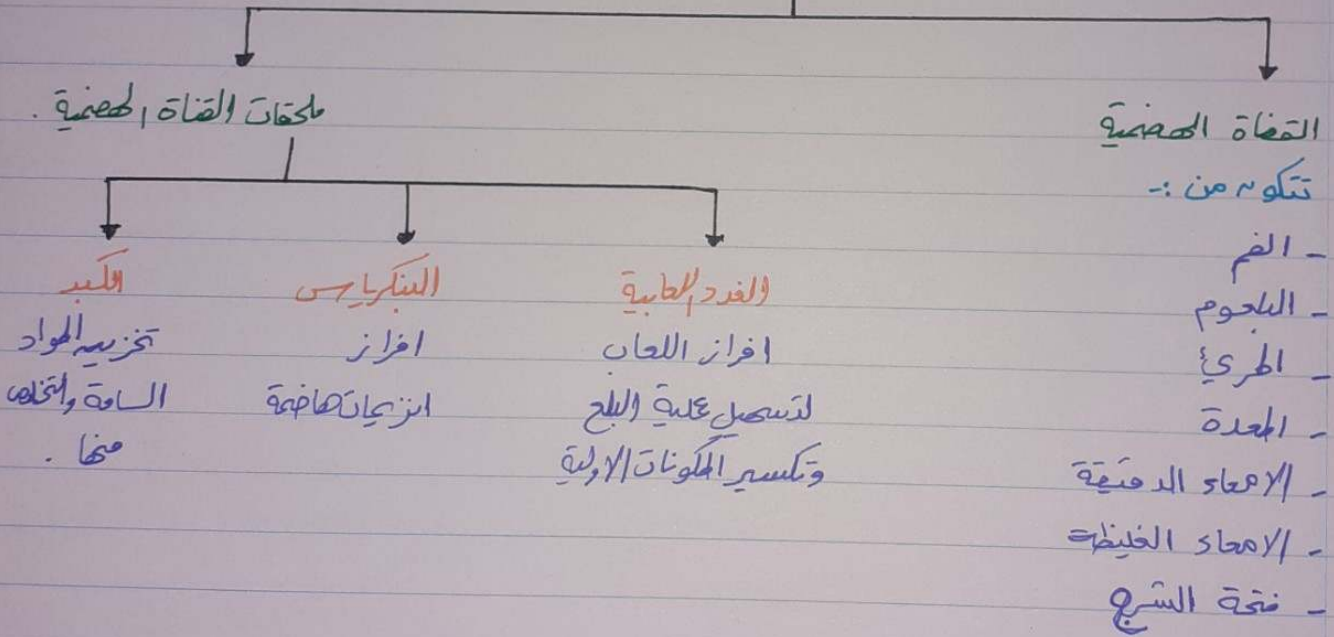 القناة الهضمية
تتكون من :-
- الفم
- البلعوم
- المريء
- المعدة
- الامعاء الدقيقة
- الامعاء الغليظة
- فتحة الشرج
ملحقات القناة الهضمية .
الغدد اللعابية
افراز اللعاب
لتسهيل عملية البلع
وتكسير المكونات الاولية
البنكرياس
افراز
انزيمات هاضمة
الكبد
تخزين المواد
السامة والتخلص
منها .